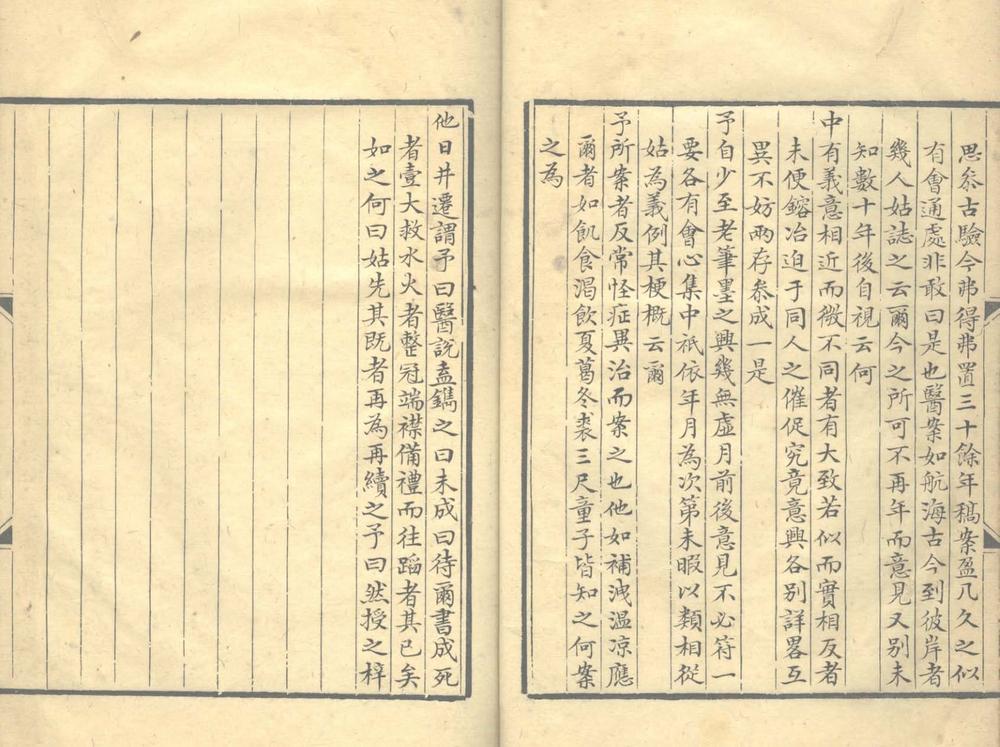 思叅古驗今弗得弗置三十餘年稿案盈几久之似
有會通處非敢曰是也醫案如航海古今到彼岸者
幾人姑誌之云爾今之所可不再年而意見又别未
知數十年後自視云何
中有義意相近而微不同者有大致若似而實相反者
未便鎔冶迫于同人之催促究竟意興各别詳畧互
異不妨兩存叅成一是
予自少至老筆墨之興幾無虛月前後意見不必符一
要各有會心集中祇依年月為次第未暇以類相從
姑為義例其梗概云爾
予所案者反常怪症異治而案之也他如補洩温凉應
爾者如飢食渴飲夏葛冬裘三尺童子皆知之何案
之為
他日井遷謂予曰醫說盍鐫之曰未成曰待爾書成死
者壹大救水火者整冠端襟備禮而往蹈者其已矣
如之何曰姑先其既者再為再續之予曰然授之梓